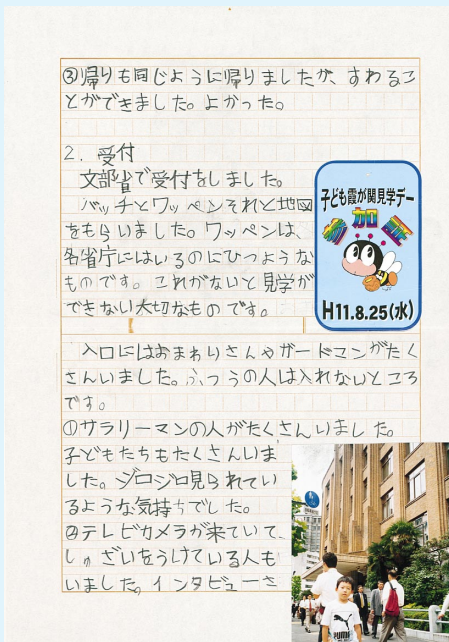 ③帰りも同じように帰りましたが、すわるこ
とができました。よかった。
2. 受付
文部省で受付をしました。
バッチとワッペンそれと地図
をもらいました。ワッペンは、
各省庁にはいるのにひつような
ものです。これがないと見学が
できない大切なものです。
子ども霞が関見学デー
参加証
H11.8.25(水)
入口にはおまわりさんやガードマンがたく
さんいました。ふつうの人は入れないところ
です。
①サラリーマンの人がたくさんいました。
子どもたちもたくさんいま
した。ジロジロ見られてい
るような気持ちでした。
②テレビカメラが来ていて、
しゅざいをうけている人も
いました。インタビューさ
PUMA